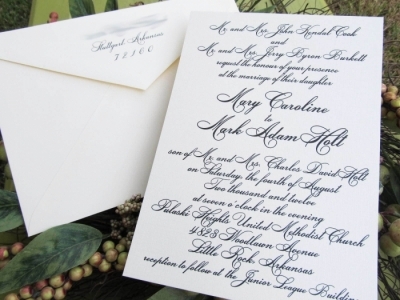 Stuttgart, Arkansas
72160
Mr. and Mrs. John Kendal Cook
and
Mr. and Mrs. Jerry Byron Burkett
request the honour of your presence
at the marriage of their daughter
Mary Caroline
to
Mark Adam Holt
son of Mr. and Mrs. Charles David Holt
on Saturday, the fourth of August
Two thousand and twelve
at seven o'clock in the evening
Pulaski Heights United Methodist Church
4823 Woodlawn Avenue
Little Rock, Arkansas
reception to follow at the Junior League Building